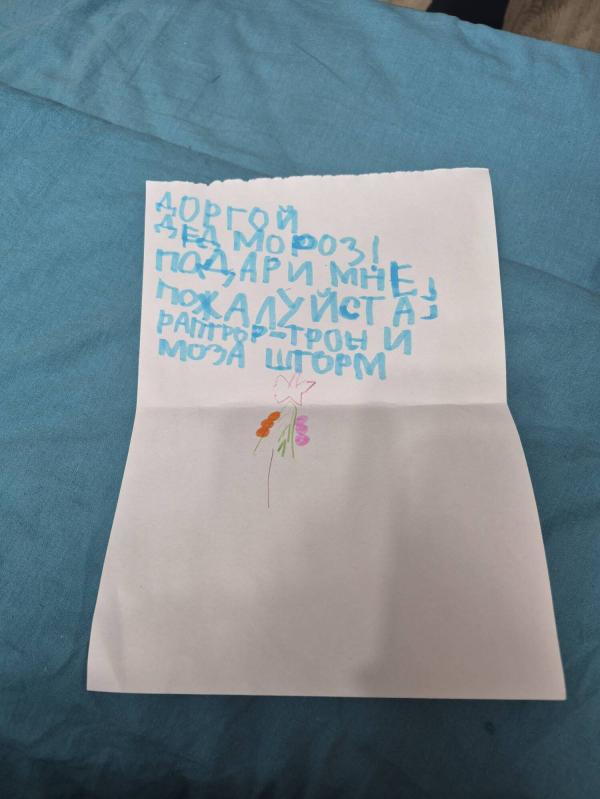 ДОРГОЙ
ДЕД МОРОЗ!
ПОДАРИ МНЕ,
ПОЖАЛУЙСТА,
РАПТРОР-ТРОН И
МОЗА ШТОРМ